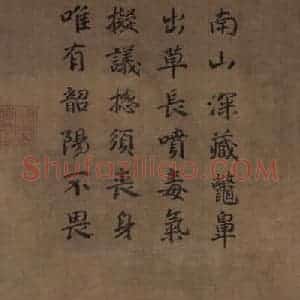 南山深藏鼈鼻
出草長噴毒氣
擬議揔須喪身
唯有韶陽不畏
Shufaziliao.COM